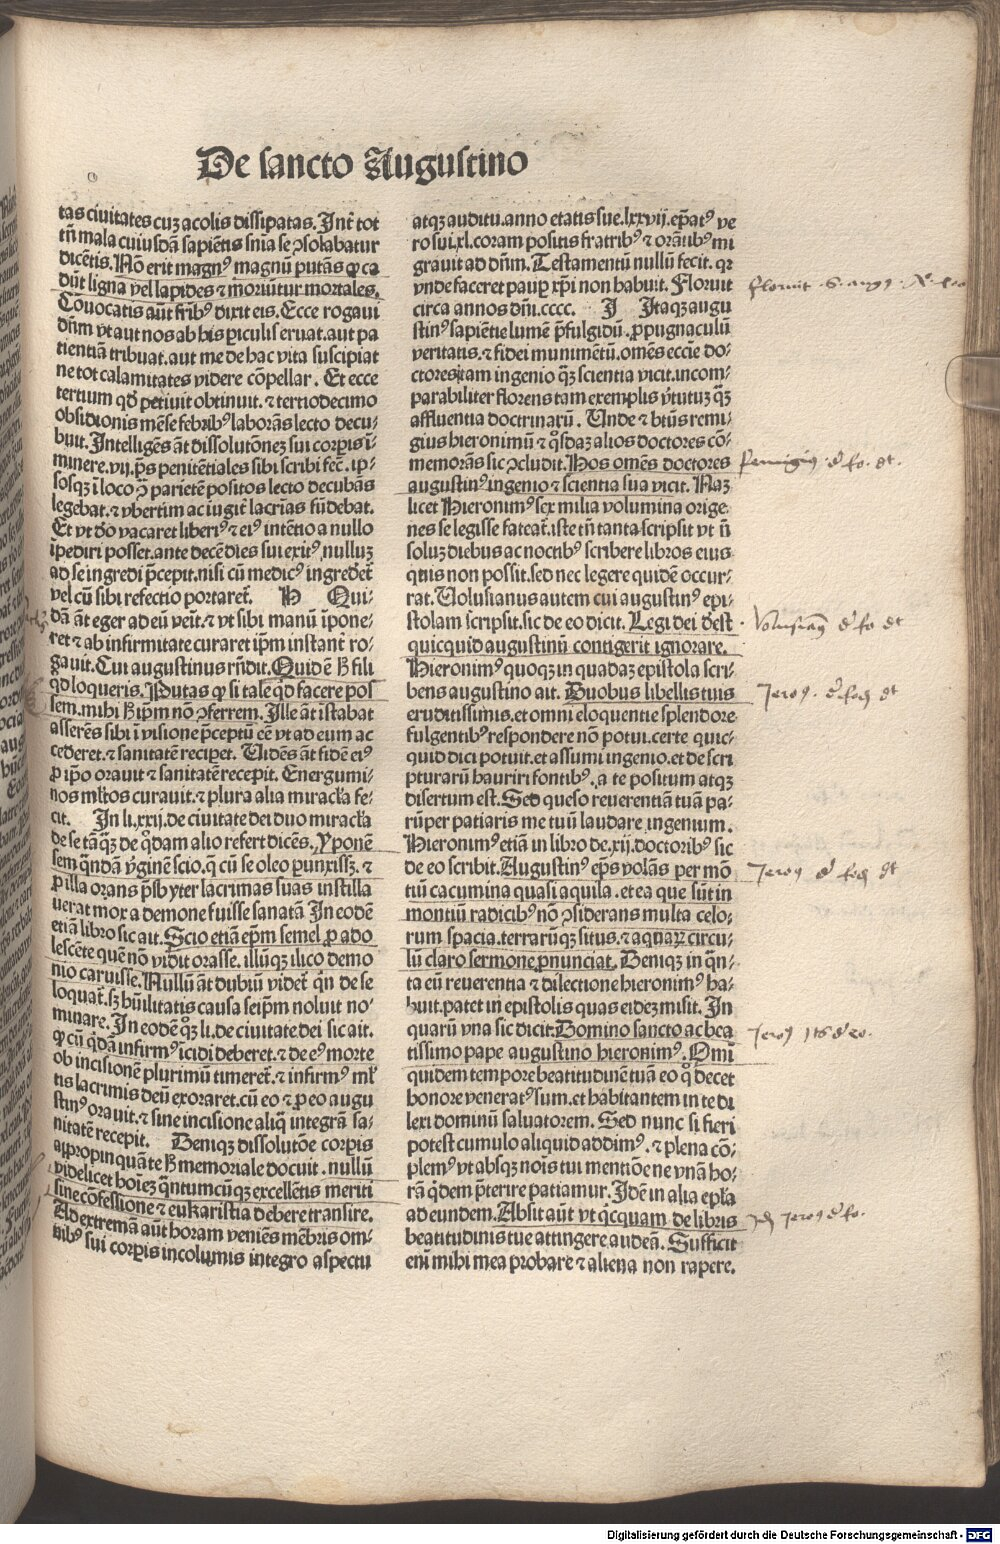 De sancto Augustino
tas ciuitates cuꝫ acolis dissipatas. Int̃ tot
tñ mala cuiusdã sapiẽtis snĩa se ꝯsolabatur
dicẽtis. Nõ erit magnꝰ magnũ putãs ꝙ ca
dũt ligna vel lapides ⁊ moriũtur mortales.
Cõuocatis aũt fribꝰ dixit eis. Ecce rogaui
dñm vt aut nos ab his ꝑiculis eruat. aut pa
tientiã tribuat. aut me de hac vita suscipiat
ne tot calamitates videre cõpellar. Et ecce
tertium qď petiuit obtinuit. ⁊ tertiodecimo
obsidionis mẽse febribꝰ laborãs lecto decu-
buit. Intelligẽs ãt dissolutõneꝫ sui corꝑis ĩ-
minere. vij. p̃s penitẽtiales sibi scribi fec̃. ip-
sosqꝫ ĩ loco ꝯ̃ parietẽ positos lecto decubãs
legebat. ⁊ vbertim ac iugit̃ lacrĩas fũdebat.
Et vt deo vacaret liberiꝰ ⁊ eiꝰ intẽtio a nullo
ĩpediri posset. ante decẽ dies sui exitꝰ nulluꝫ
ad se ingredi p̃cepit. nisi cũ medicꝰ ingredet̃
vel cũ sibi refectio portaret̃. H Qui-
dã ãt eger ad eũ veit̃ ⁊ vt sibi manũ ĩpone-
ret ⁊ ab infirmitate curaret ip̃m instant̃ ro-
gauit. Cui augustinus rñdit. Quid ẽ ꝫ fili
qď loqueris. Putas ꝙ si tale qď facere pos
sem. mihi ip̃m nõ ꝯferrem. Ille ãt istabat
asserẽs sibi ĩ visione p̃ceptũ eẽ vt ad eum ac
cederet. ⁊ sanitatẽ reciꝑet. Uidẽs ãt fidẽ eiꝰ
ꝓ ip̃o orauit ⁊ sanitatẽ recepit. Energumi-
nos ml̃tos curauit. ⁊ plura alia miracl̃a fe-
cit. In li. xxij. de ciuitate dei duo miracl̃a
de se tãqꝫ de qͦdam alio refert dicẽs. Ypponẽ
sem qͣndã v̓ginẽ scio. q̃ cũ se oleo ꝑunxissꝫ. ⁊
ꝓ illa orans p̃sbyter lacrimas suas instilla
uerat mox a demone fuisse sanatã. In eodẽ
etiã libro sic ait. Scio etiã ep̃m semel ꝓ ado
lescẽte quẽ nõ vidit orasse. illũqꝫ ilico demo
nio caruisse. Nullũ ãt dubiũ videt̃ qͥn de se
loquat̃. sꝫ hũilitatis causa seip̃m noluit no-
minare. In eodẽ qꝫ li. de ciuitate dei sic ait.
ꝙ cũ qͥdã infirmꝰ ĩcidi deberet. ⁊ de eꝰ morte
ob incisionẽ plurimũ timeret̃. ⁊ infirmꝰ ml̃
tis lacrimis deũ exoraret. cũ eo ⁊ ꝓ eo augu
stinꝰ orauit. ⁊ sine incisione aliq̃ integrã sa-
nitatẽ recepit. Deniqꝫ dissolutõe corꝑis
appropinquãte memoriale docuit. nullũ
videlicet hoieꝫ qͣntumcũqꝫ excellẽtis meriti
sine cõfessione ⁊ eukaristia debere transire.
Ad extremã aũt horam veniẽs mẽbris om-
nibꝰ sui corꝑis incolumis integro aspectu
atqꝫ auditu. anno etatis sue. lxxvij. ep̃atꝰ ve
ro sui. xl. coram positis fratribꝰ ⁊ orãtibꝰ mi
grauit ad dñm. Testamentũ nullũ fecit. qr
vnde faceret pauꝑ xp̃i non habuit. Floruit
circa annos dñi. cccc. J Itaqꝫ augu
stinꝰ sapiẽtie lumẽ p̃fulgidũ. ꝓpugnaculũ
veritatis. ⁊ fidei munimẽtũ. omẽs eccĩe do-
ctores tam ingenio qͣꝫ scientia vicit. incom-
parabiliter florens tam exemplis v̓tutuꝫ qͣꝫ
affluentia doctrinarũ. Unde ⁊ bt̃us remi-
gius hieronimũ ⁊ qͦsdaꝫ alios doctores cõ-
memorãs sic ꝯcludit. Hos omẽs doctores
augustinꝰ ingenio ⁊ scientia sua vicit. Naꝫ
licet Hieronimꝰ sex milia volumina orige-
nes se legisse fateat̃. iste tñ tanta scripsit vt ñ
soluꝫ diebus ac noctibꝰ scribere libros eius
quis non possit. sed nec legere quidẽ occur-
rat. Uolusianus autem cui augustinꝰ epi-
stolam scripsit. sic de eo dicit. Legi dei deest
quicquid augustinũ contigerit ignorare.
Hieronimꝰ quoqꝫ in quadaꝫ epistola scri-
bens augustino ait. Duobus libellis tuis
eruditissimis. et omni eloquentie splendore
fulgentibꝰ respondere nõ potui. certe quic-
quid dici potuit. et assumi ingenio. et de scri
pturarũ hauriri fontibꝰ. a te positum atqꝫ
disertum est. Sed queso reuerentiã tuã pa-
rũꝑer patiaris me tuũ laudare ingenium.
Hieronimꝰ etiã in libro de. xij. doctoribꝰ sic
de eo scribit. Augustinꝰ ep̃s volãs per mõ
tiũ cacumina quasi aquila. et ea que sũt in
montiũ radicibꝰ nõ ꝯsiderans multa celo-
rum spacia. terrarũqꝫ situs. ⁊ aquaꝝ circu-
lũ claro sermone ꝓnunciat. Deniqꝫ in qͣn-
ta eũ reuerentia ⁊ dilectione hieronimꝰ ha-
buit. patet in epistolis quas eideꝫ misit. In
quarũ vna sic dicit. Domino sancto ac bea
tissimo pape augustino hieronimꝰ. Omi
quidem tempore beatitudinẽ tuã eo qͦ decet
honore veneratꝰ sum. et habitantem in te di
lexi dominũ saluatorem. Sed nunc si fieri
potest cumulo aliquid addimꝰ. ⁊ plena cõ-
plemꝰ vt absqꝫ noĩs tui mentiõe ne vnã ho-
rã qͥdem p̃terire patiamur. Idẽ in alia epl̃a
ad eundem. Absit aũt vt qͥcquam de libris
beatitudinis tue attingere audeã. Sufficit
eni mihi mea probare ⁊ aliena non rapere.
Digitalisierung gefördert durch die Deutsche Forschungsgemeinschaft - DFG